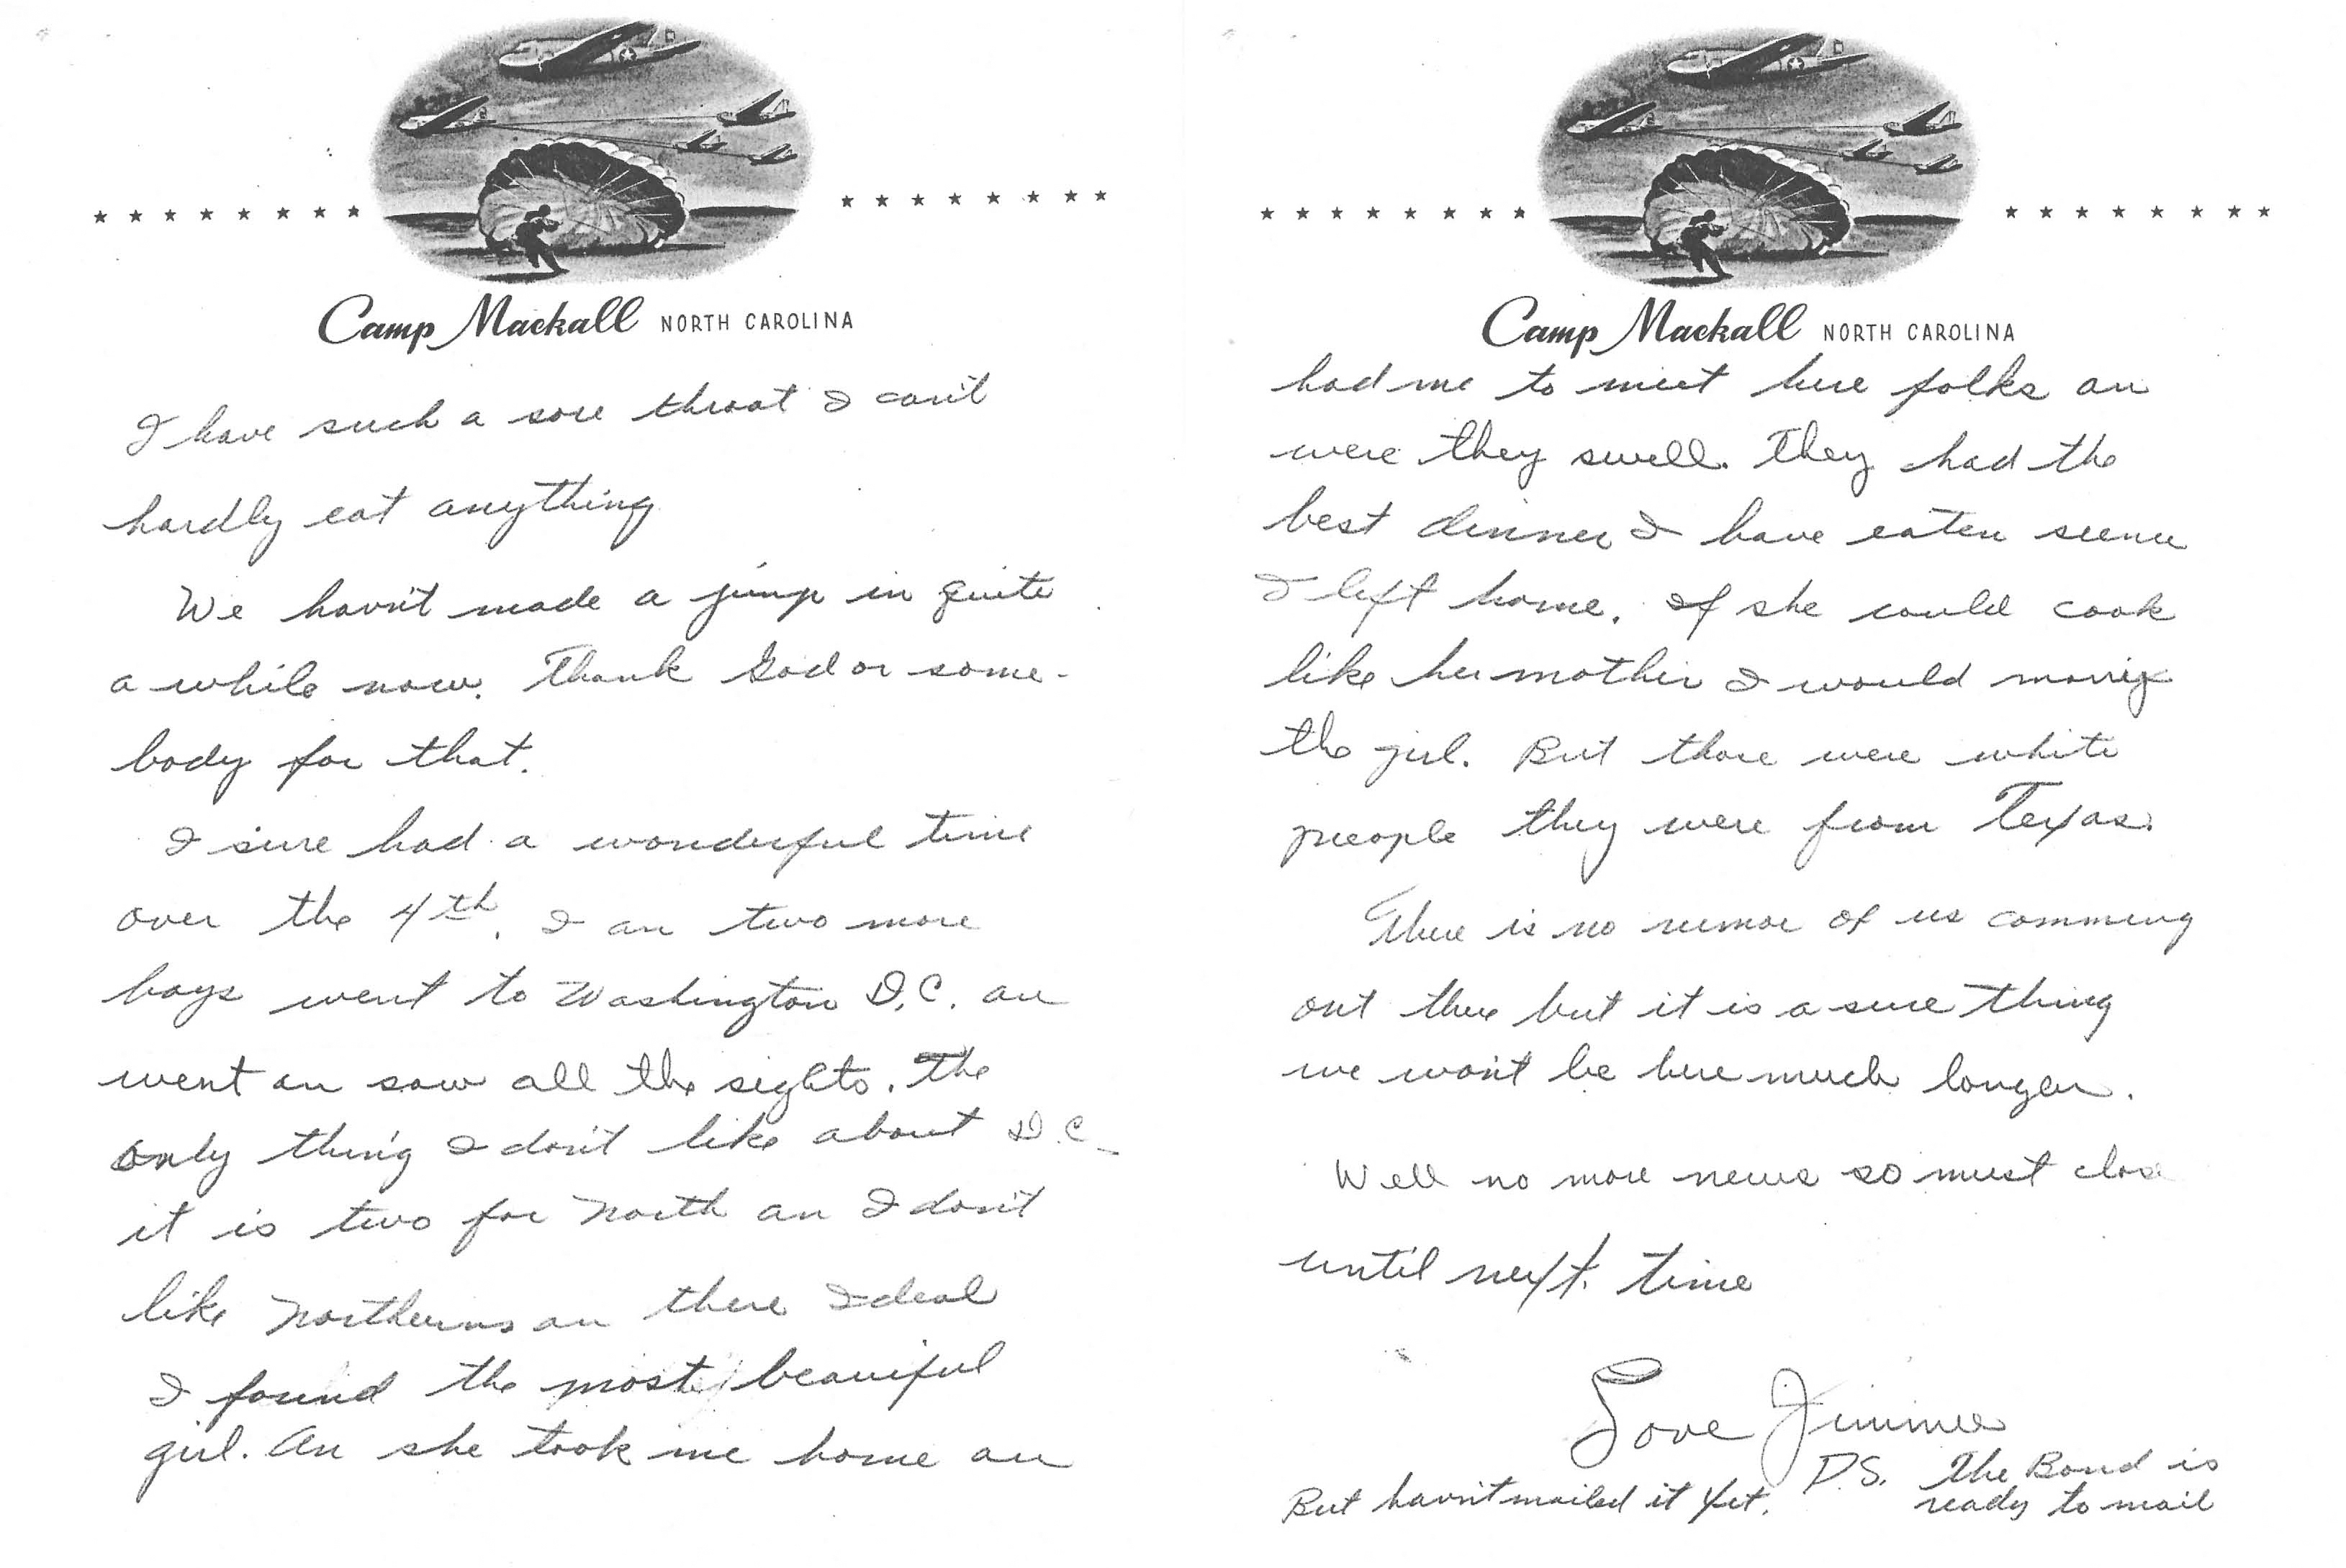 Camp Mackall NORTH CAROLINA
I have such a sore throat I can't
hardly eat anything
We havn't made a jump in quite
a while now. Thank God or some-
body for that.
I sure had a wonderful time
over the 4th. I an two more
boys went to Washington D.C. an
went an saw all the sights. The
only thing I don't like about D.C.
it is two far North an I don't
like Northerns an there Ideal
I found the most beauiful
girl. An she took me home an
Camp Mackall NORTH CAROLINA
had me to meet here folks an
were they swell. They had the
best dinner I have eaten scence
I left home. If she could cook
like her mother I would marry
the girl. But those were white
people they were from Texas.
There is no rumor of us comming
out there but it is a sure thing
we won't be here much longer.
Well no more news so must close
until next time
Love Jimmie
P.S. The Bond is
ready to mail
But havn't mailed it yet.